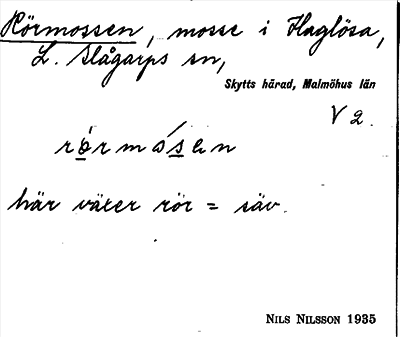 Rörmossen, mosse i Haglösa,
L. Slågarps sn,
Skytts härad, Malmöhus län
V 2.
rörmosen
här växer rör = säv.
NILS NILSSON 1935